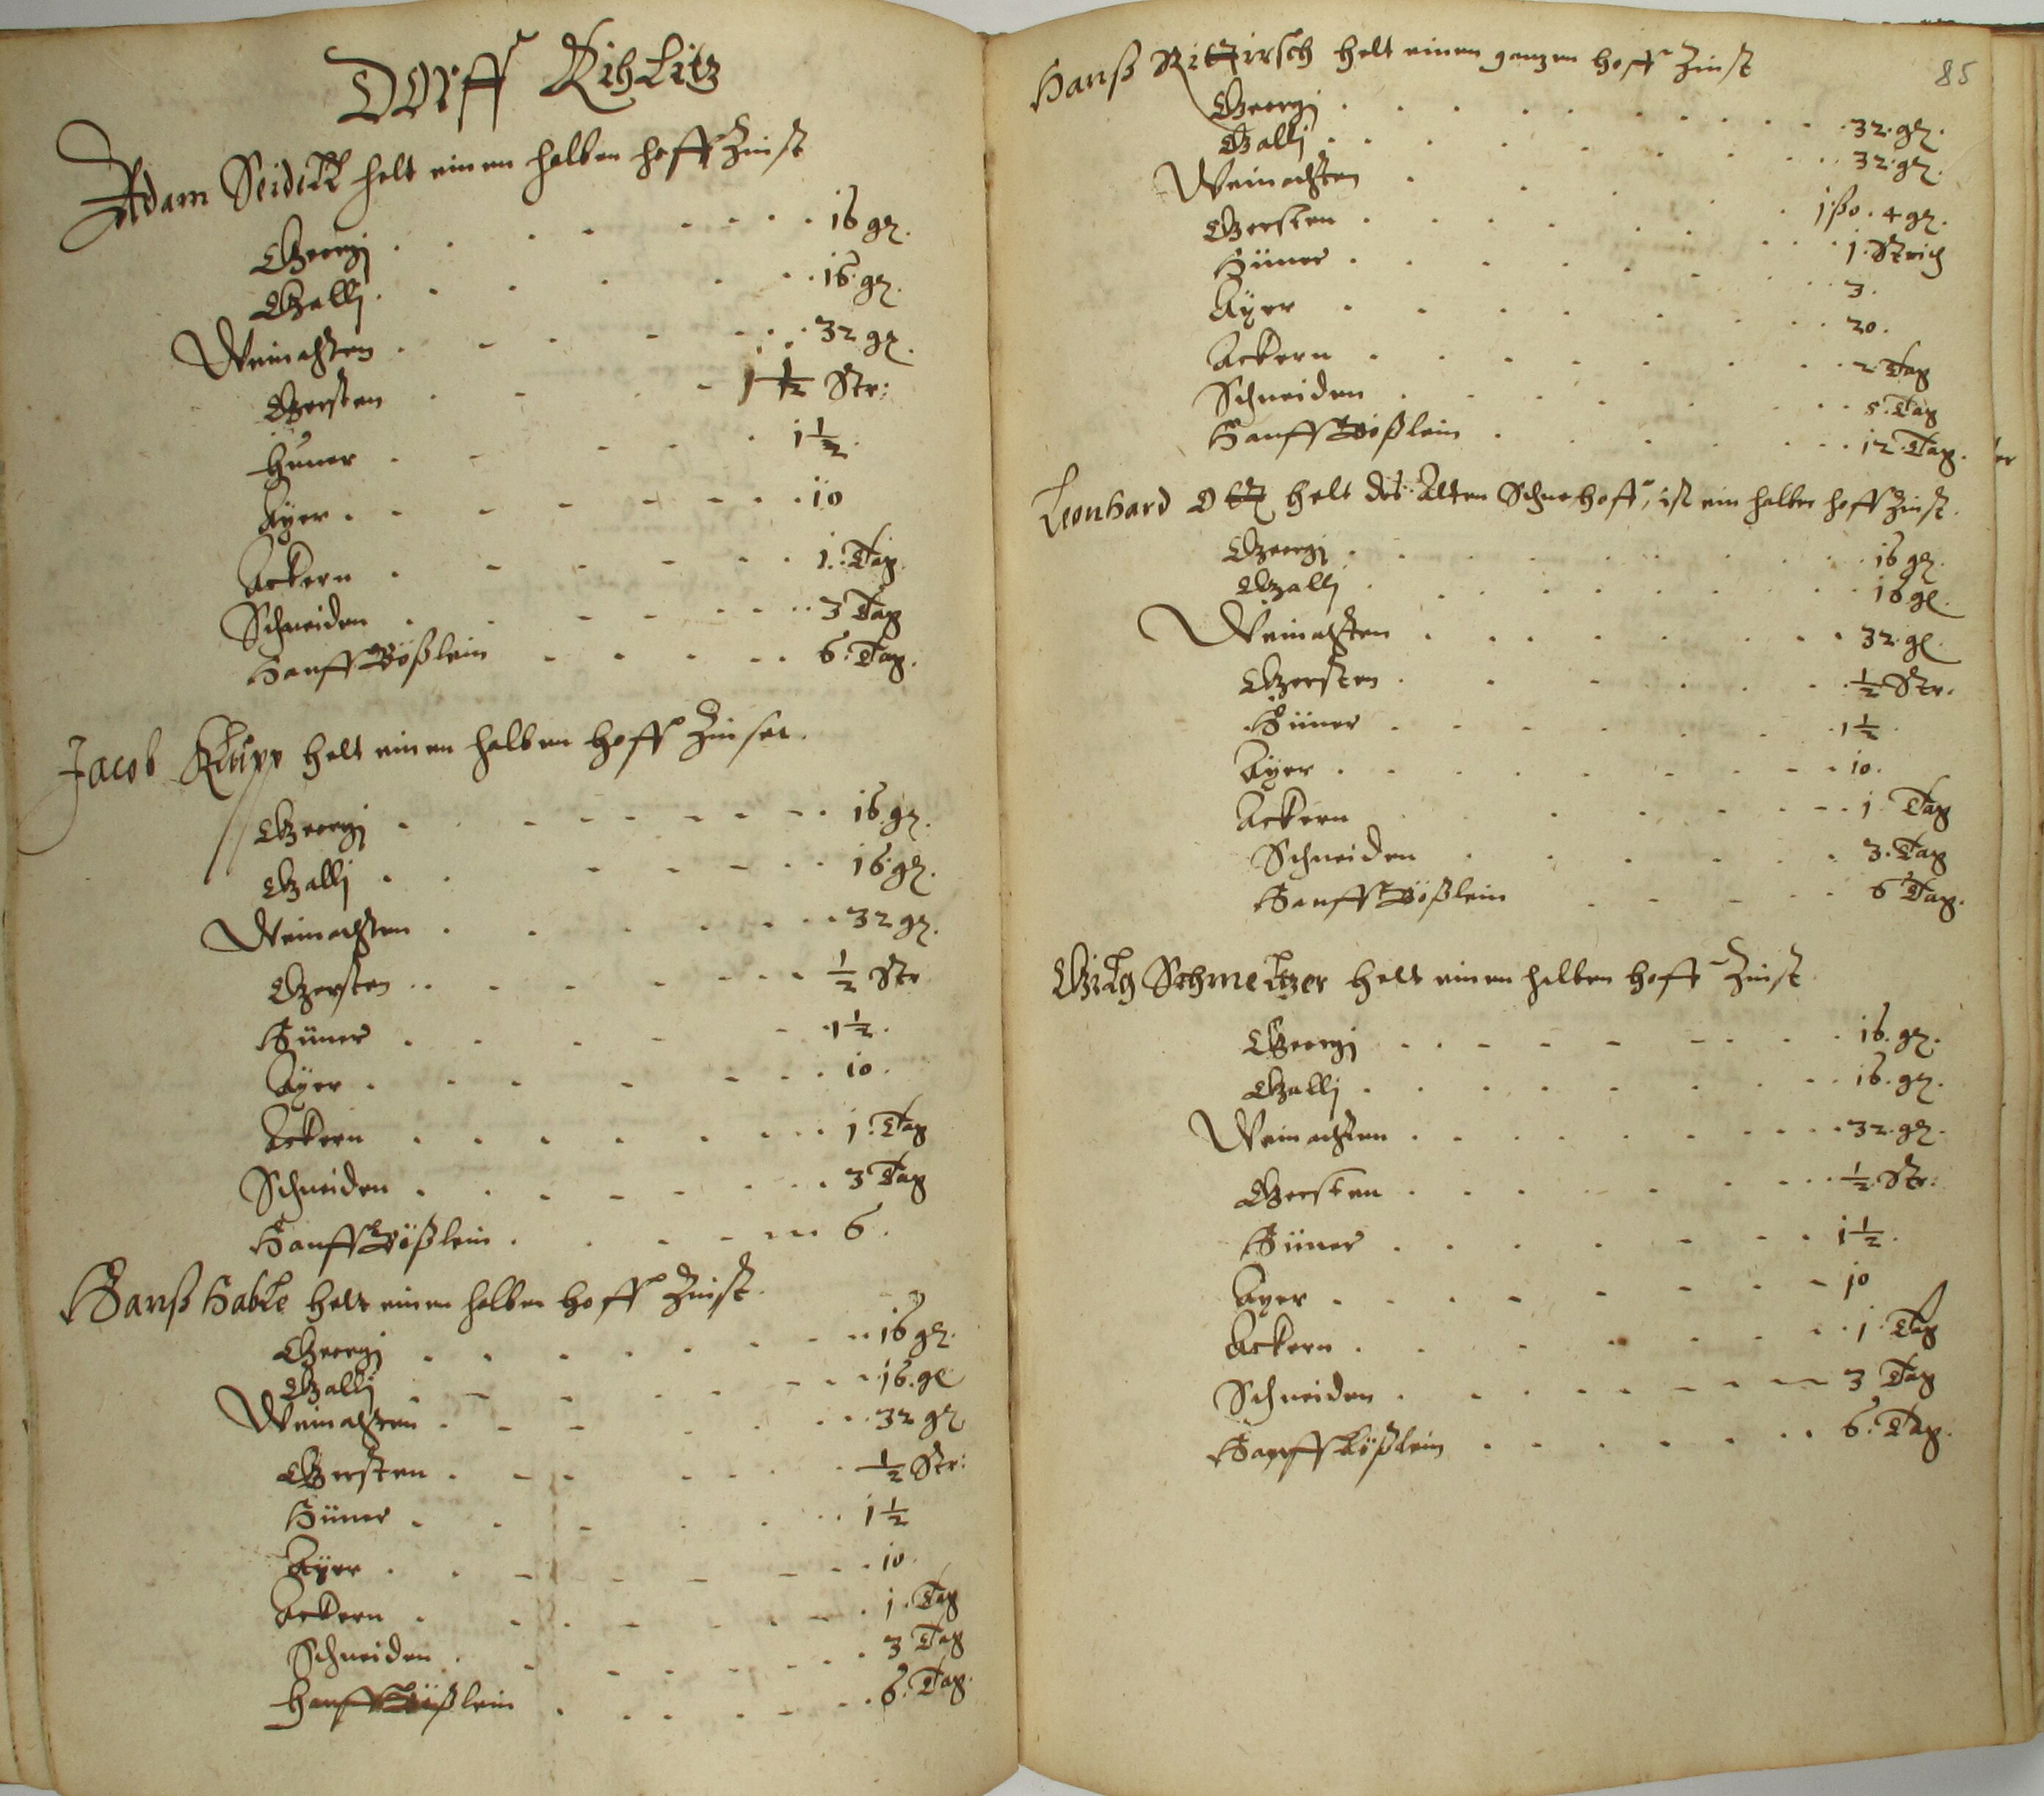 Dorff Kihlitz
Adam Seidell helt einen halben hoff Zinst
Georgj . . . . . . . 16 gr.
Gallj . . . . . . 16. gr.
Weinachten . . . . . . 32 gr.
Gersten . . . . 1 1/2 Str:
Hüner . . . . . 1 1/2.
Ayer . . . . . . . 10
Ackern . . . . . . 1. Tag.
Schneiden . . . . . . 3 Tag
Hanff . . . . . . 6. Tag.
Jacob Klupp helt einen halben hoff Zinset.
Georgj . . . . . . . . 16 gr.
Gallj . . . . . . 16. gr.
Weinachten . . . . . . . 32 gr.
Gersten . . . . . . . 1/2 Str
Hüner . . . . . . 1 1/2.
Ayer . . . . . . . 10.
Ackern . . . . . . . 1. Tag
Schneiden . . . . . . . 3 Tag
Hanff . . . . . . 6.
Hanß Hable helt einen halben hoff Zinst.
Georgj . . . . . . . 16 gr.
Gallj . . . . . . . 16. gr
Weinachten . . . . . . . 32 gr
Gersten . . . . . . . 1/2 Str:
Hüner . . . . . . . 1 1/2
Ayer . . . . . . . 10.
Ackern . . . . . . . 1. Tag
Schneiden . . . . . . . 3 Tag
Hanff . . . . . . . 6. Tag.
85
Hanß Rittirsch helt einen ganzen hoff Zinst
Georgj . . . . . . . . 32. gr.
Gallj . . . . . . . . 32. gr.
Weinachten . . . . . 1. ßo. 4 gr.
Gersten . . . . . . . 1. Strich
Hüner . . . . . . . 3.
Ayer . . . . . . . 20.
Ackern . . . . . . . 2 Tag
Schneiden . . . . . . . 5. Tag
Hanff . . . . . . 12. Tag.
Leonhard Ott helt des Alten hoff, ist ein halber hoff Zinst.
Georgj . . . . . . . . 16 gr.
Gallj . . . . . . . . 16 gr.
Weinachten . . . . . . . 32. gr.
Gersten . . . . . . . 1/2 Str.
Hüner . . . . . . . 1 1/2
Ayer . . . . . . . . 10.
Ackern . . . . . . . 1 Tag
Schneiden . . . . . . 3. Tag
Hanff . . . . . 6 Tag.
Gilg Schmeltzer helt einen halben hoff Zinst
Georgj . . . . . . . . 16. gr.
Gallj . . . . . . . . 16. gr.
Weinachten . . . . . . . 32. gr.
Gersten . . . . . . . 1/2 Str:
Hüner . . . . . . . 1 1/2.
Ayer . . . . . . . . 10
Ackern . . . . . . . 1. Tag
Schneiden . . . . . . . 3 Tag
Hanff . . . . . . . 6. Tag.